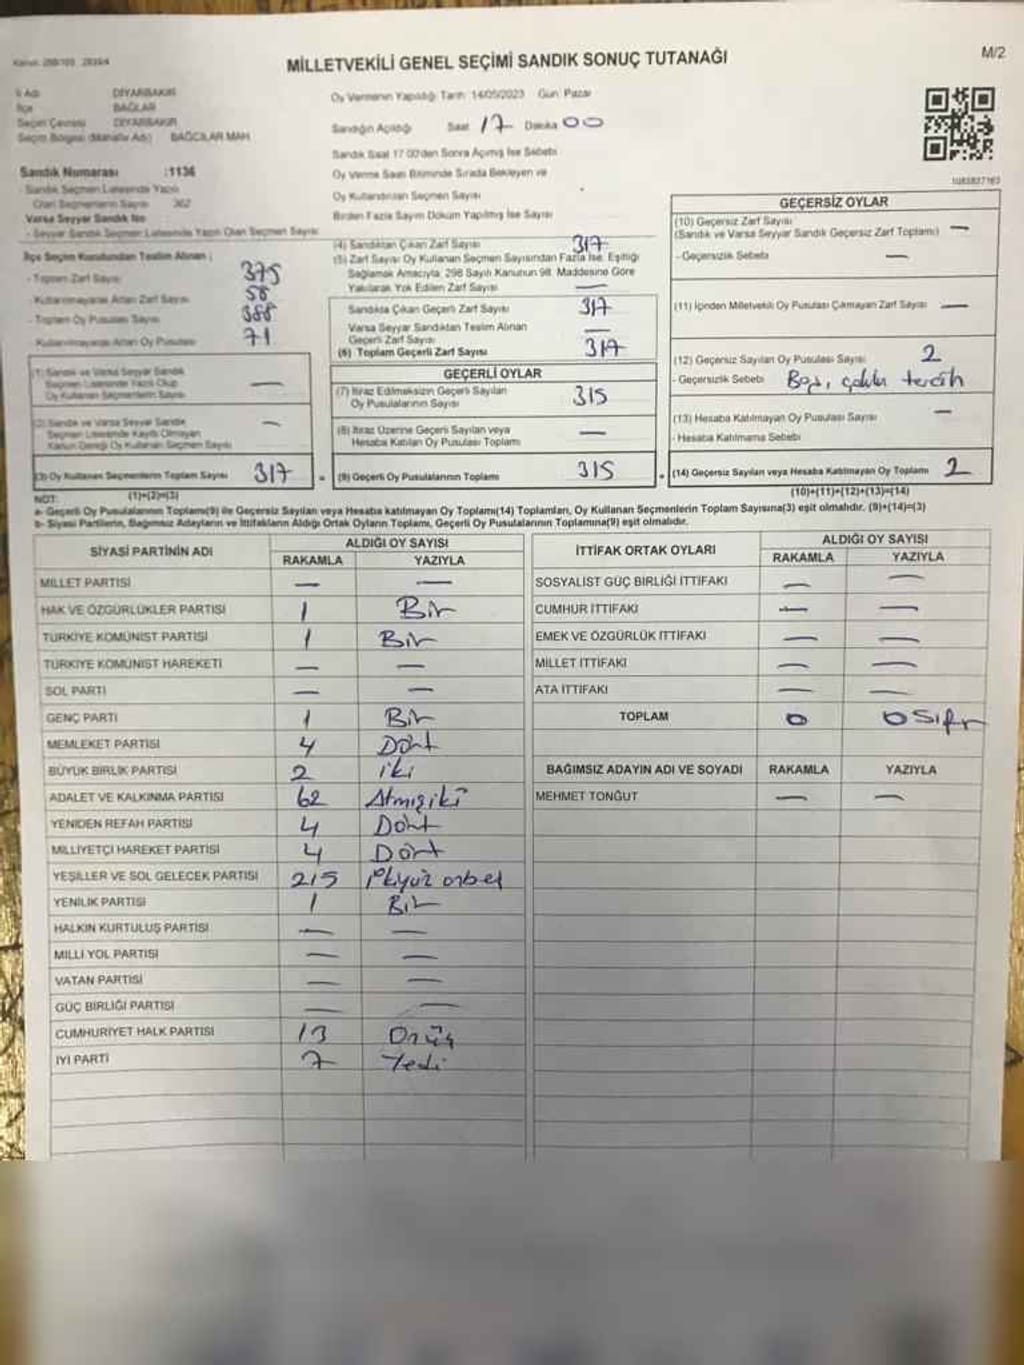 MİLLETVEKİLİ GENEL SEÇİMİ SANDIK SONUÇ TUTANAĞI
M/2
İl Adı DİYARBAKIR
İlçe BAĞLAR
Seçim Çevresi DİYARBAKIR
Seçim Bölgesi (Mahalle Adı) BAĞCILAR MAH
Sandık Numarası :1136
- Sandık Seçmen Listesinde Yazılı
Olan Seçmenlerin Sayısı 362
Varsa Seyyar Sandık No
- Seyyar Sandık Seçmen Listesinde Yazılı Olan Seçmen Sayısı
İlçe Seçim Kurulundan Teslim Alınan ;
- Toplam Zarf Sayısı 375
- Kullanılmayarak Artan Zarf Sayısı 58
- Toplam Oy Pusulası Sayısı 388
- Kullanılmayarak Artan Oy Pusulası 71
(1) Sandık ve Varsa Seyyar Sandık
Seçmen Listesinde Yazılı Olup
Oy Kullanan Seçmenlerin Sayısı —
(2) Sandık ve Varsa Seyyar Sandık
Seçmen Listesinde Kayıtlı Olmayan
Kanun Gereği Oy Kullanan Seçmen Sayısı —
(3) Oy Kullanan Seçmenlerin Toplam Sayısı 317
(1)+(2)=(3)
Oy Vermenin Yapıldığı Tarih: 14/05/2023 Gün: Pazar
Sandığın Açıldığı Saat 17 Dakika 00
Sandık Saat 17.00'den Sonra Açılmış İse Sebebi
Oy Verme Saati Bitiminde Sırada Bekleyen ve
Oy Kullandırılan Seçmen Sayısı
Birden Fazla Sayım Döküm Yapılmış İse Sayısı
(4) Sandıktan Çıkan Zarf Sayısı 317
(5) Zarf Sayısı Oy Kullanan Seçmen Sayısından Fazla İse, Eşitliği
Sağlamak Amacıyla, 298 Sayılı Kanunun 98. Maddesine Göre
Yakılarak Yok Edilen Zarf Sayısı —
Sandıkta Çıkan Geçerli Zarf Sayısı 317
Varsa Seyyar Sandıktan Teslim Alınan
Geçerli Zarf Sayısı —
(6) Toplam Geçerli Zarf Sayısı 317
GEÇERLİ OYLAR
(7) İtiraz Edilmeksizin Geçerli Sayılan
Oy Pusulalarının Sayısı 315
(8) İtiraz Üzerine Geçerli Sayılan veya
Hesaba Katılan Oy Pusulası Toplamı —
= (9) Geçerli Oy Pusulalarının Toplamı 315
GEÇERSİZ OYLAR
(10) Geçersiz Zarf Sayısı
(Sandık ve Varsa Seyyar Sandık Geçersiz Zarf Toplamı) —
- Geçersizlik Sebebi —
(11) İçinden Milletvekili Oy Pusulası Çıkmayan Zarf Sayısı —
(12) Geçersiz Sayılan Oy Pusulası Sayısı 2
- Geçersizlik Sebebi Boş, çoklu tercih
(13) Hesaba Katılmayan Oy Pusulası Sayısı —
- Hesaba Katılmama Sebebi
+ (14) Geçersiz Sayılan veya Hesaba Katılmayan Oy Toplamı 2
(10)+(11)+(12)+(13)=(14)
NOT:
a- Geçerli Oy Pusulalarının Toplamı(9) ile Geçersiz Sayılan veya Hesaba katılmayan Oy Toplamı(14) Toplamları, Oy Kullanan Seçmenlerin Toplam Sayısına(3) eşit olmalıdır. (9)+(14)=(3)
b- Siyasi Partilerin, Bağımsız Adayların ve İttifakların Aldığı Ortak Oyların Toplamı, Geçerli Oy Pusulalarının Toplamına(9) eşit olmalıdır.
SİYASİ PARTİNİN ADI ALDIĞI OY SAYISI
RAKAMLA YAZIYLA
MİLLET PARTİSİ — —
HAK VE ÖZGÜRLÜKLER PARTİSİ 1 Bir
TÜRKİYE KOMÜNİST PARTİSİ 1 Bir
TÜRKİYE KOMÜNİST HAREKETİ — —
SOL PARTİ — —
GENÇ PARTİ 1 Bir
MEMLEKET PARTİSİ 4 Dört
BÜYÜK BİRLİK PARTİSİ 2 iki
ADALET VE KALKINMA PARTİSİ 62 Atmışiki
YENİDEN REFAH PARTİSİ 4 Dört
MİLLİYETÇİ HAREKET PARTİSİ 4 Dört
YEŞİLLER VE SOL GELECEK PARTİSİ 215 ikiyüz onbeş
YENİLİK PARTİSİ 1 Bir
HALKIN KURTULUŞ PARTİSİ — —
MİLLİ YOL PARTİSİ — —
VATAN PARTİSİ — —
GÜÇ BİRLİĞİ PARTİSİ — —
CUMHURİYET HALK PARTİSİ 13 Onüç
İYİ PARTİ 7 Yedi
İTTİFAK ORTAK OYLARI ALDIĞI OY SAYISI
RAKAMLA YAZIYLA
SOSYALİST GÜÇ BİRLİĞİ İTTİFAKI — —
CUMHUR İTTİFAKI — —
EMEK VE ÖZGÜRLÜK İTTİFAKI — —
MİLLET İTTİFAKI — —
ATA İTTİFAKI — —
TOPLAM 0 0 Sıfır
BAĞIMSIZ ADAYIN ADI VE SOYADI RAKAMLA YAZIYLA
MEHMET TONĞUT — —